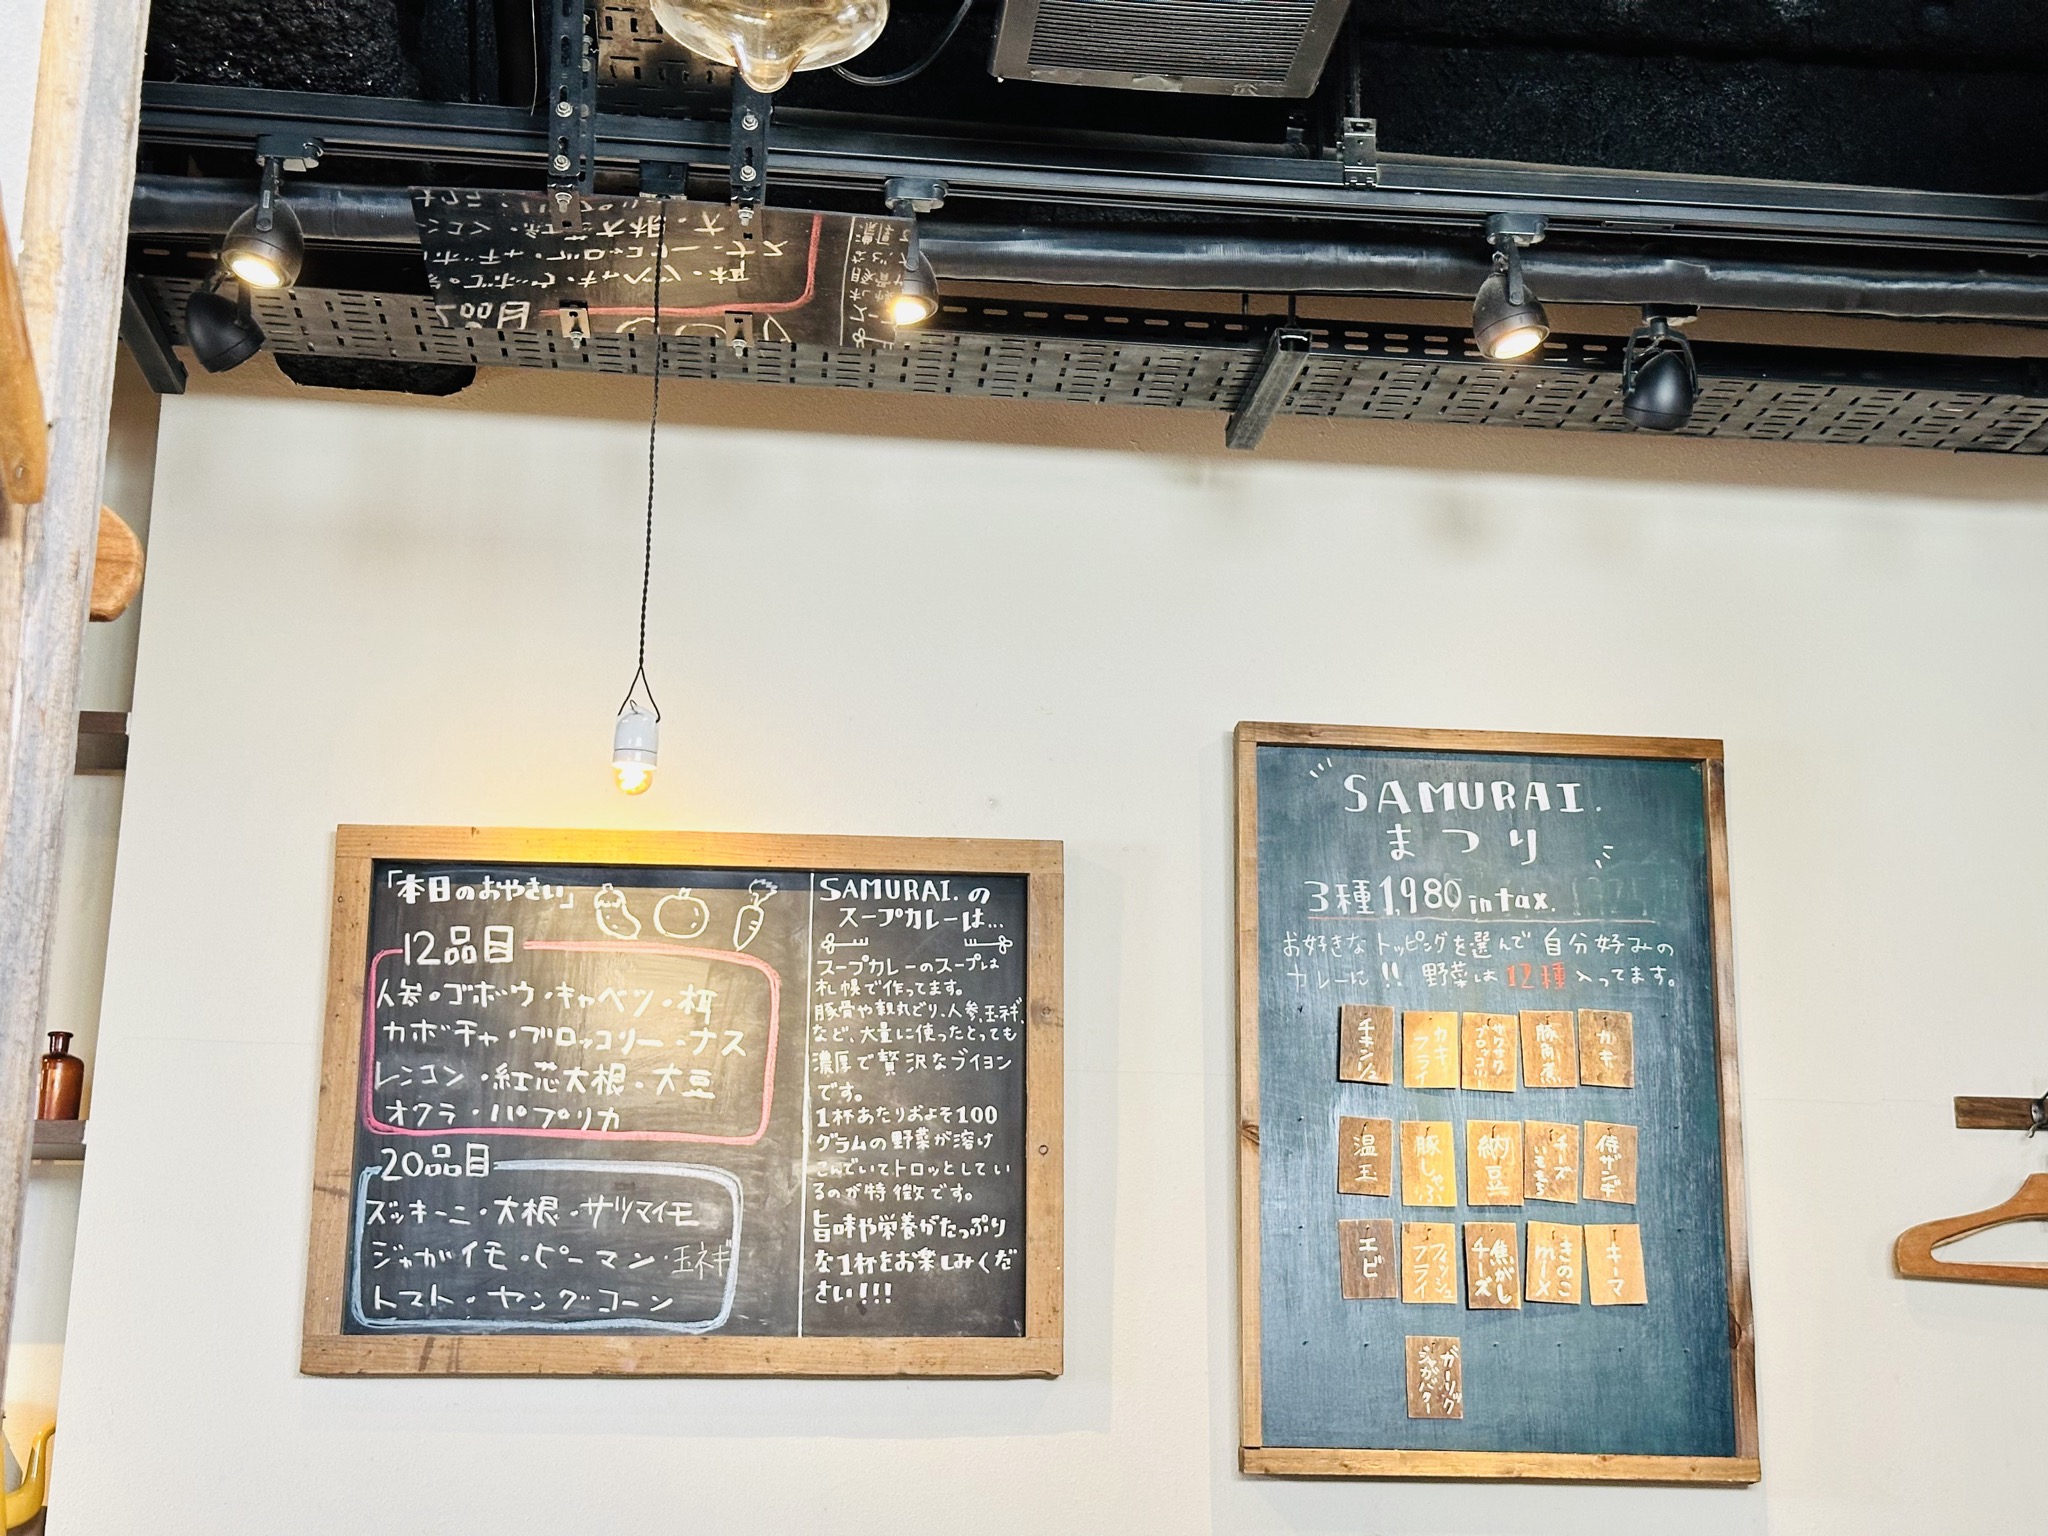 「本日のおやさい」
12品目
人参・ゴボウ・キャベツ・
カボチャ・ブロッコリー・ナス
レンコン・紅芯大根・大豆
オクラ・パプリカ
20品目
ズッキーニ・大根・サツマイモ
ジャガイモ・ピーマン・玉ネギ
トマト・ヤングコーン
SAMURAI.の
スープカレーは...
スープカレーのスープは
札幌で作ってます。
豚骨や親丸どり、人参、玉ネギ、
など、大量に使ったとっても
濃厚で贅沢なブイヨン
です。
1杯あたりおよそ100
グラムの野菜が溶け
こんでいてトロッとしてい
るのが特徴です。
旨味や栄養がたっぷり
な1杯をお楽しみくだ
さい!!!
SAMURAI.
まつり
3種1,980 in tax.
お好きなトッピングを選んで自分好みの
カレーに!! 野菜は12種入ってます。
チキン
カキフライ
サクサクブロッコリー
豚角煮
カキ
温玉
豚しゃぶ
納豆
チーズいももち
侍ザンギ
エビ
フィッシュフライ
焦がしチーズ
きのこ
キーマ
ガーリック
じゃがバター